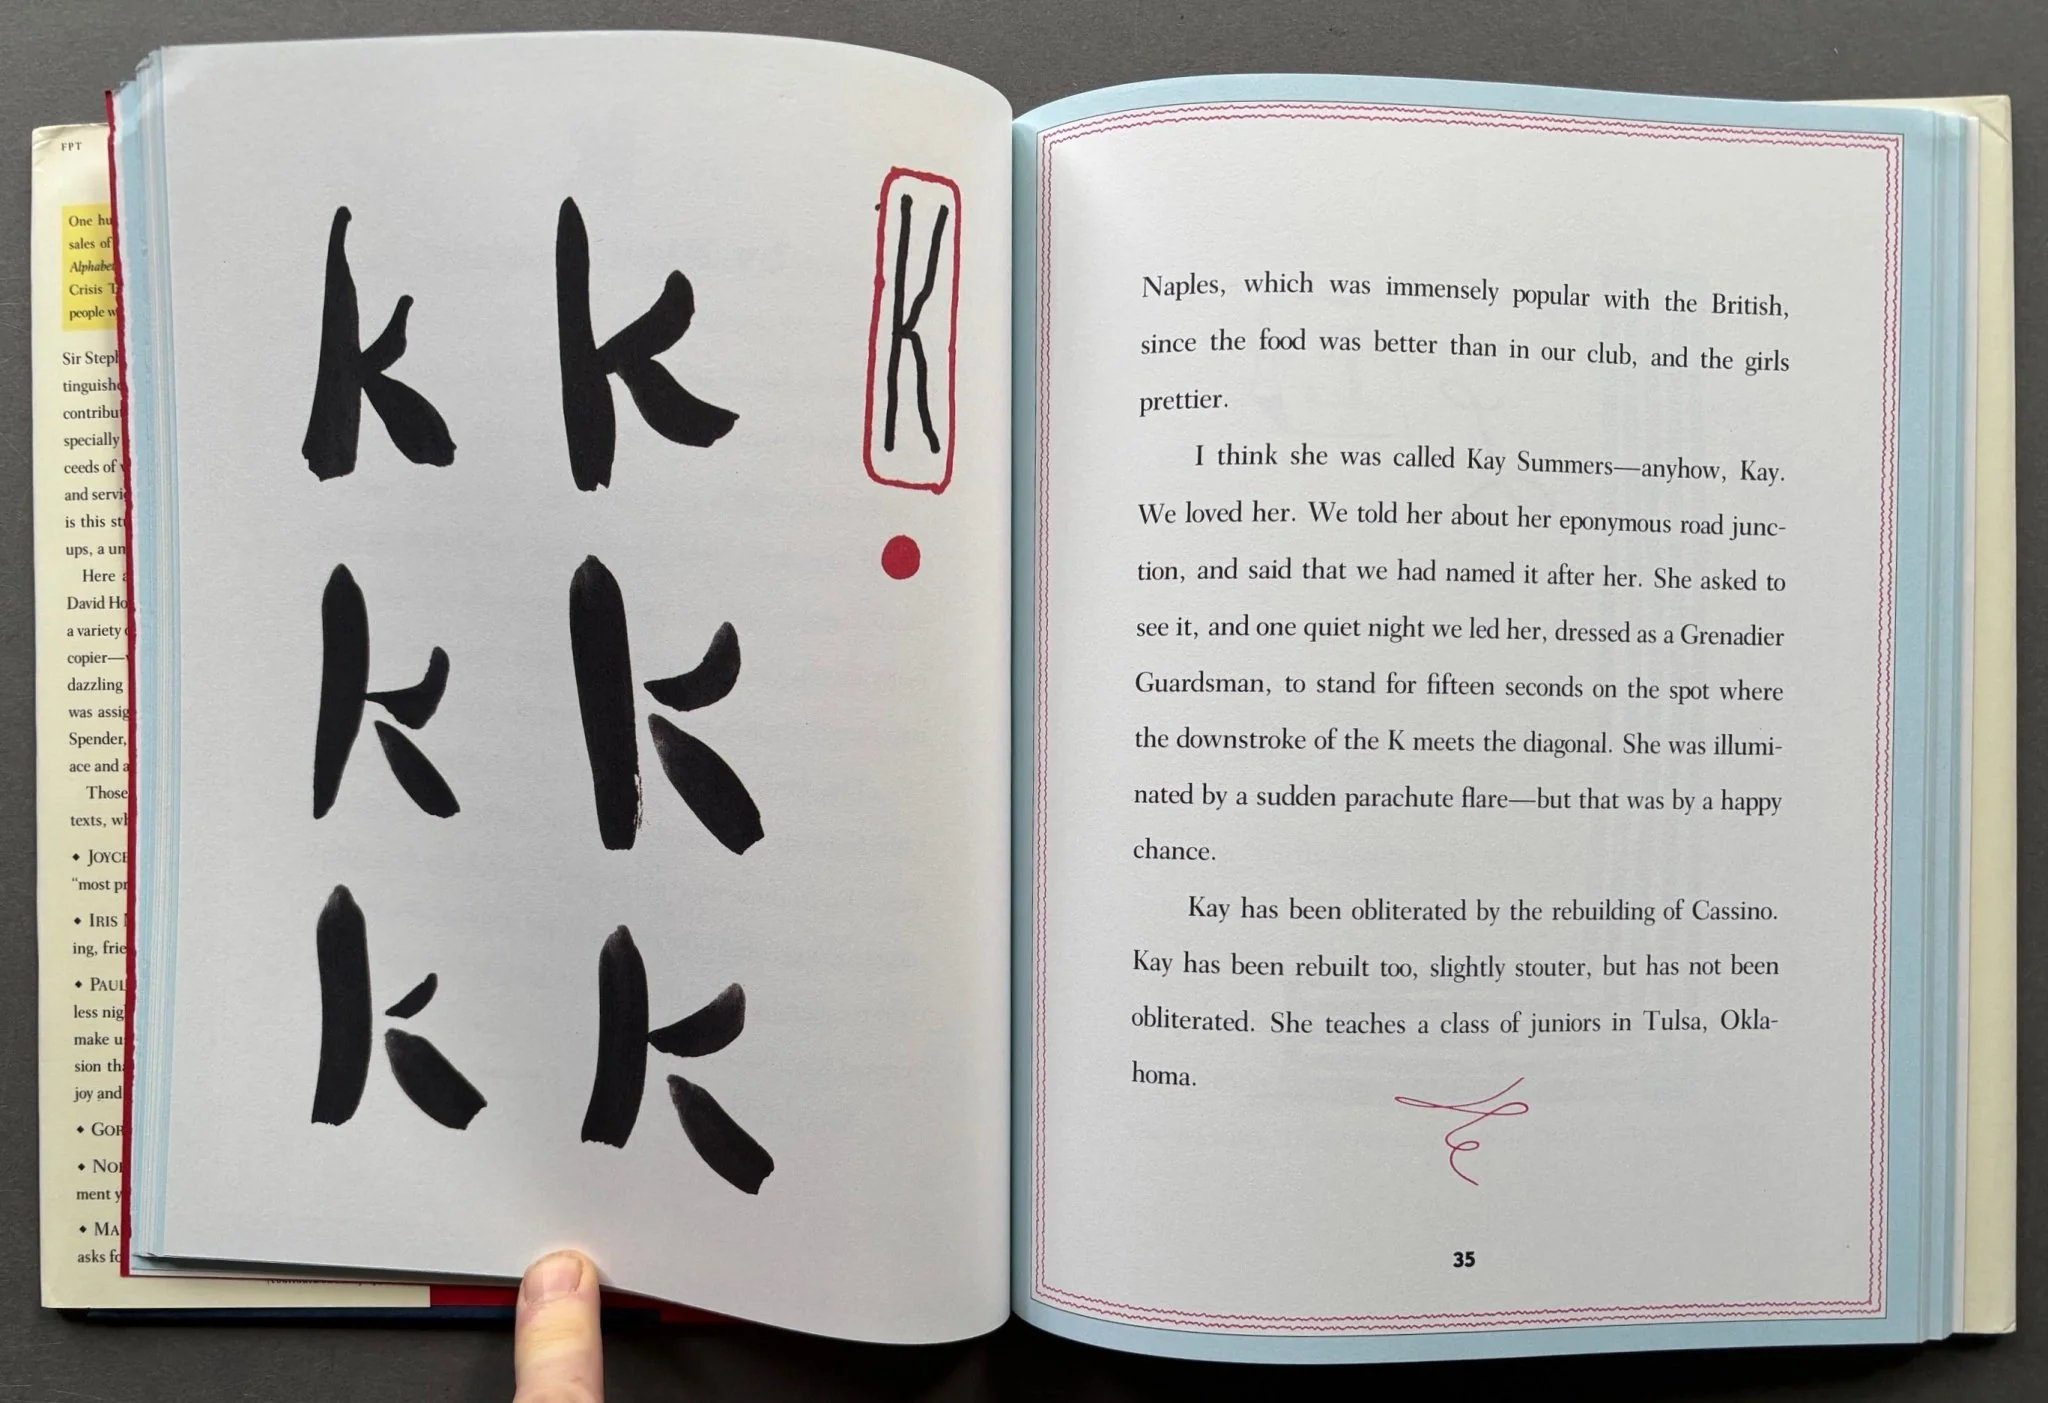 FPT
One hu
sales of
Alphabet
Crisis T
people w
Sir Steph
tinguishe
contribut
specially
ceeds of
and servi
is this st
ups, a un
Here a
David Ho
a variety
copier—
dazzling
was assig
Spender,
ace and a
Those
texts, wh
◆ JOYCE
"most pr
◆ IRIS
ing, frie
◆ PAUL
less nig
make u
sion tha
joy and
◆ GOR
◆ NO
ment y
◆ MA
asks fo
k k K
k k
k k
Naples, which was immensely popular with the British,
since the food was better than in our club, and the girls
prettier.
I think she was called Kay Summers—anyhow, Kay.
We loved her. We told her about her eponymous road junc-
tion, and said that we had named it after her. She asked to
see it, and one quiet night we led her, dressed as a Grenadier
Guardsman, to stand for fifteen seconds on the spot where
the downstroke of the K meets the diagonal. She was illumi-
nated by a sudden parachute flare—but that was by a happy
chance.
Kay has been obliterated by the rebuilding of Cassino.
Kay has been rebuilt too, slightly stouter, but has not been
obliterated. She teaches a class of juniors in Tulsa, Okla-
homa.
35